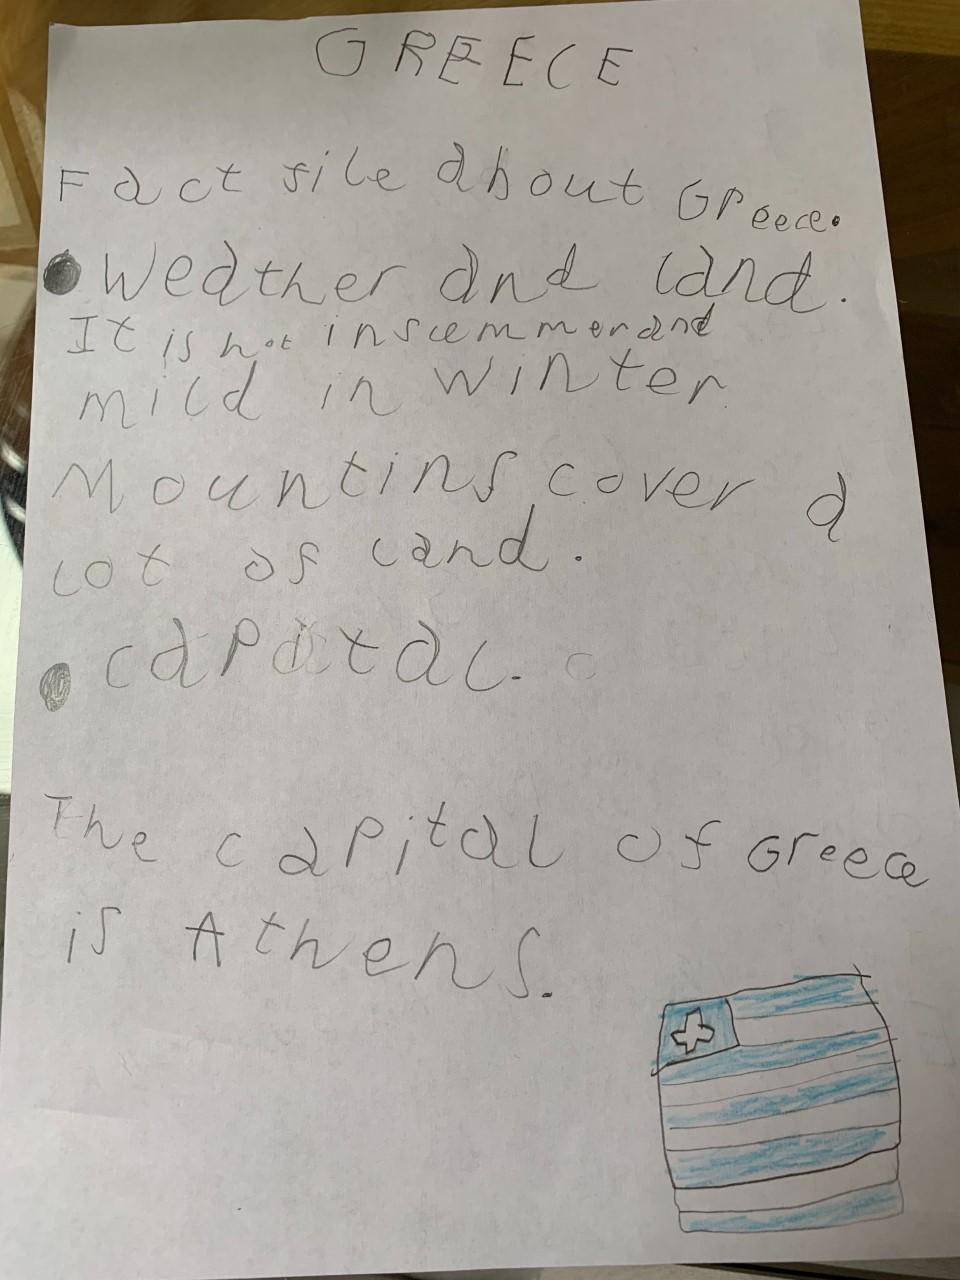 GREECE
Fact file about Greece.
Weather and land.
It is hot in summer and
mild in winter
Mountins cover a
lot of land.
Capital.
The capital of Greece
is Athens.